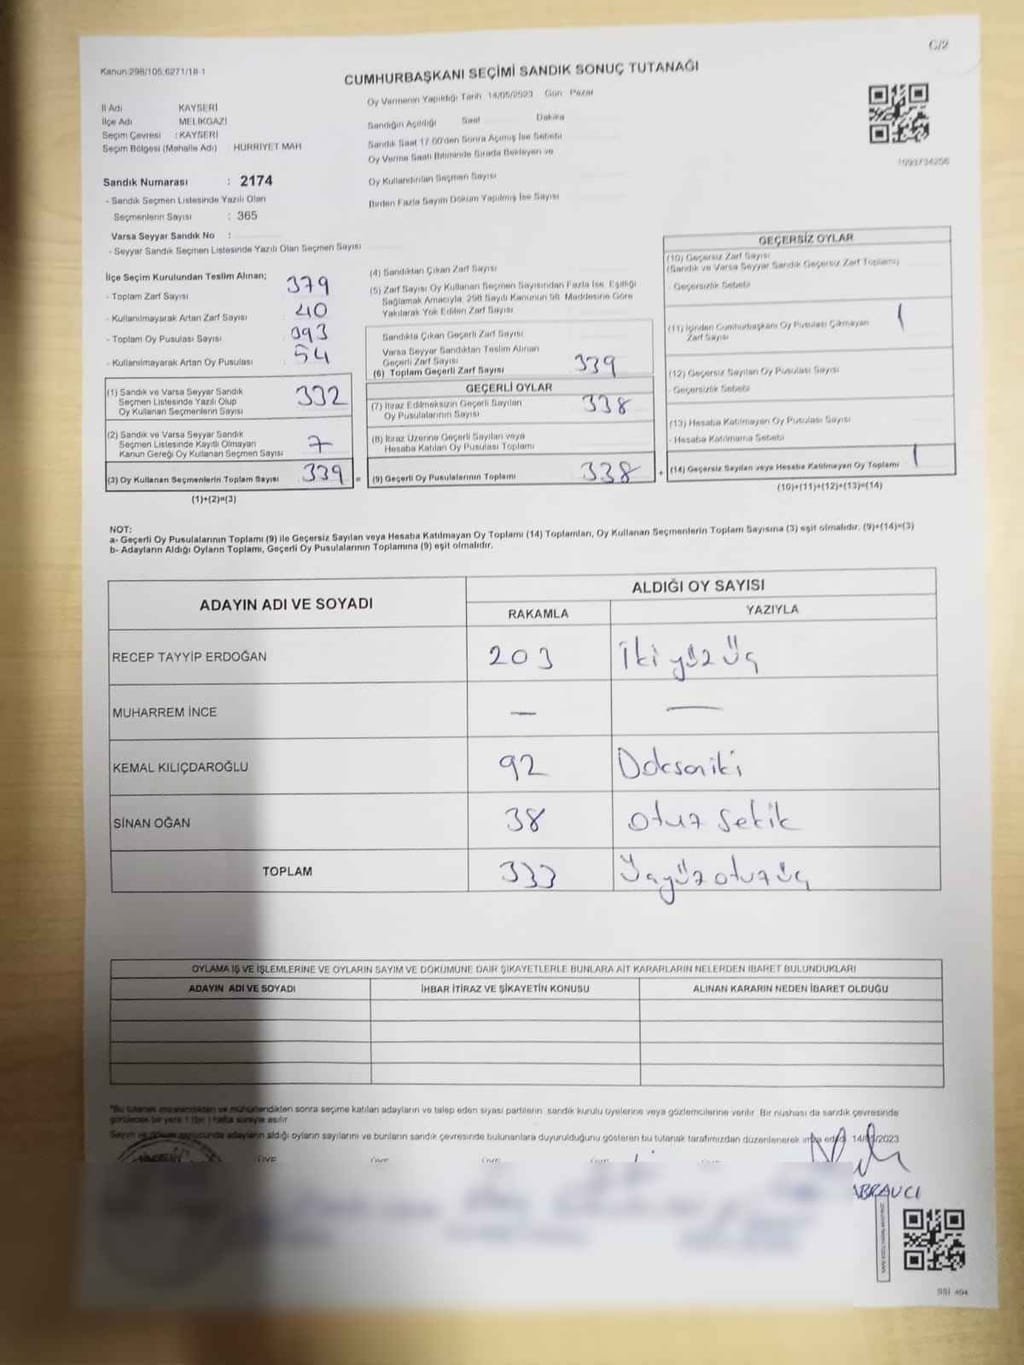 C/2
Kanun:298/105,6271/18-1
CUMHURBAŞKANI SEÇİMİ SANDIK SONUÇ TUTANAĞI
İl Adı KAYSERİ
İlçe Adı MELİKGAZİ
Seçim Çevresi : KAYSERİ
Seçim Bölgesi (Mahalle Adı) HÜRRİYET MAH
Sandık Numarası : 2174
- Sandık Seçmen Listesinde Yazılı Olan
Seçmenlerin Sayısı : 365
Varsa Seyyar Sandık No :
- Seyyar Sandık Seçmen Listesinde Yazılı Olan Seçmen Sayısı
Oy Vermenin Yapıldığı Tarih 14/05/2023 Gün Pazar
Sandığın Açıldığı Saat Dakika
Sandık Saat 17.00'den Sonra Açılmış İse Sebebi
Oy Verme Saati Bitiminde Sırada Bekleyen ve
Oy Kullandırılan Seçmen Sayısı
Birden Fazla Sayım Döküm Yapılmış İse Sayısı
İlçe Seçim Kurulundan Teslim Alınan;
- Toplam Zarf Sayısı 379
- Kullanılmayarak Artan Zarf Sayısı 40
- Toplam Oy Pusulası Sayısı 393
- Kullanılmayarak Artan Oy Pusulası 54
(1) Sandık ve Varsa Seyyar Sandık
Seçmen Listesinde Yazılı Olup
Oy Kullanan Seçmenlerin Sayısı 332
(2) Sandık ve Varsa Seyyar Sandık
Seçmen Listesinde Kayıtlı Olmayan
Kanun Gereği Oy Kullanan Seçmen Sayısı 7
(3) Oy Kullanan Seçmenlerin Toplam Sayısı 339 =
(1)+(2)=(3)
(4) Sandıktan Çıkan Zarf Sayısı
(5) Zarf Sayısı Oy Kullanan Seçmen Sayısından Fazla İse, Eşitliği
Sağlamak Amacıyla, 298 Sayılı Kanunun 98. Maddesine Göre
Yakılarak Yok Edilen Zarf Sayısı
Sandıkta Çıkan Geçerli Zarf Sayısı
Varsa Seyyar Sandıktan Teslim Alınan
Geçerli Zarf Sayısı
(6) Toplam Geçerli Zarf Sayısı 339
GEÇERLİ OYLAR
(7) İtiraz Edilmeksizin Geçerli Sayılan
Oy Pusulalarının Sayısı 338
(8) İtiraz Üzerine Geçerli Sayılan veya
Hesaba Katılan Oy Pusulası Toplamı
(9) Geçerli Oy Pusulalarının Toplamı 338 +
GEÇERSİZ OYLAR
(10) Geçersiz Zarf Sayısı
(Sandık ve Varsa Seyyar Sandık Geçersiz Zarf Toplamı)
- Geçersizlik Sebebi
(11) İçinden Cumhurbaşkanı Oy Pusulası Çıkmayan
Zarf Sayısı 1
(12) Geçersiz Sayılan Oy Pusulası Sayısı
- Geçersizlik Sebebi
(13) Hesaba Katılmayan Oy Pusulası Sayısı
- Hesaba Katılmama Sebebi
(14) Geçersiz Sayılan veya Hesaba Katılmayan Oy Toplamı 1
(10)+(11)+(12)+(13)=(14)
NOT:
a- Geçerli Oy Pusulalarının Toplamı (9) ile Geçersiz Sayılan veya Hesaba Katılmayan Oy Toplamı (14) Toplamları, Oy Kullanan Seçmenlerin Toplam Sayısına (3) eşit olmalıdır. (9)+(14)=(3)
b- Adayların Aldığı Oyların Toplamı, Geçerli Oy Pusulalarının Toplamına (9) eşit olmalıdır.
ADAYIN ADI VE SOYADI ALDIĞI OY SAYISI
RAKAMLA YAZIYLA
RECEP TAYYİP ERDOĞAN 203 İki yüz üç
MUHARREM İNCE — —
KEMAL KILIÇDAROĞLU 92 Doksaniki
SİNAN OĞAN 38 otuz sekiz
TOPLAM 333 Üçyüzotuzüç
OYLAMA İŞ VE İŞLEMLERİNE VE OYLARIN SAYIM VE DÖKÜMÜNE DAİR ŞİKAYETLERLE BUNLARA AİT KARARLARIN NELERDEN İBARET BULUNDUKLARI
ADAYIN ADI VE SOYADI İHBAR İTİRAZ VE ŞİKAYETİN KONUSU ALINAN KARARIN NEDEN İBARET OLDUĞU
*Bu tutanak imzalandıktan ve mühürlendikten sonra seçime katılan adayların ve talep eden siyasi partilerin sandık kurulu üyelerine veya gözlemcilerine verilir. Bir nüshası da sandık çevresinde
Sayım ve döküm sonucunda adayların aldığı oyların sayılarını ve bunların sandık çevresinde bulunanlara duyurulduğunu gösteren bu tutanak tarafımızdan düzenlenerek imza edildi. 14/05/2023
SSİ